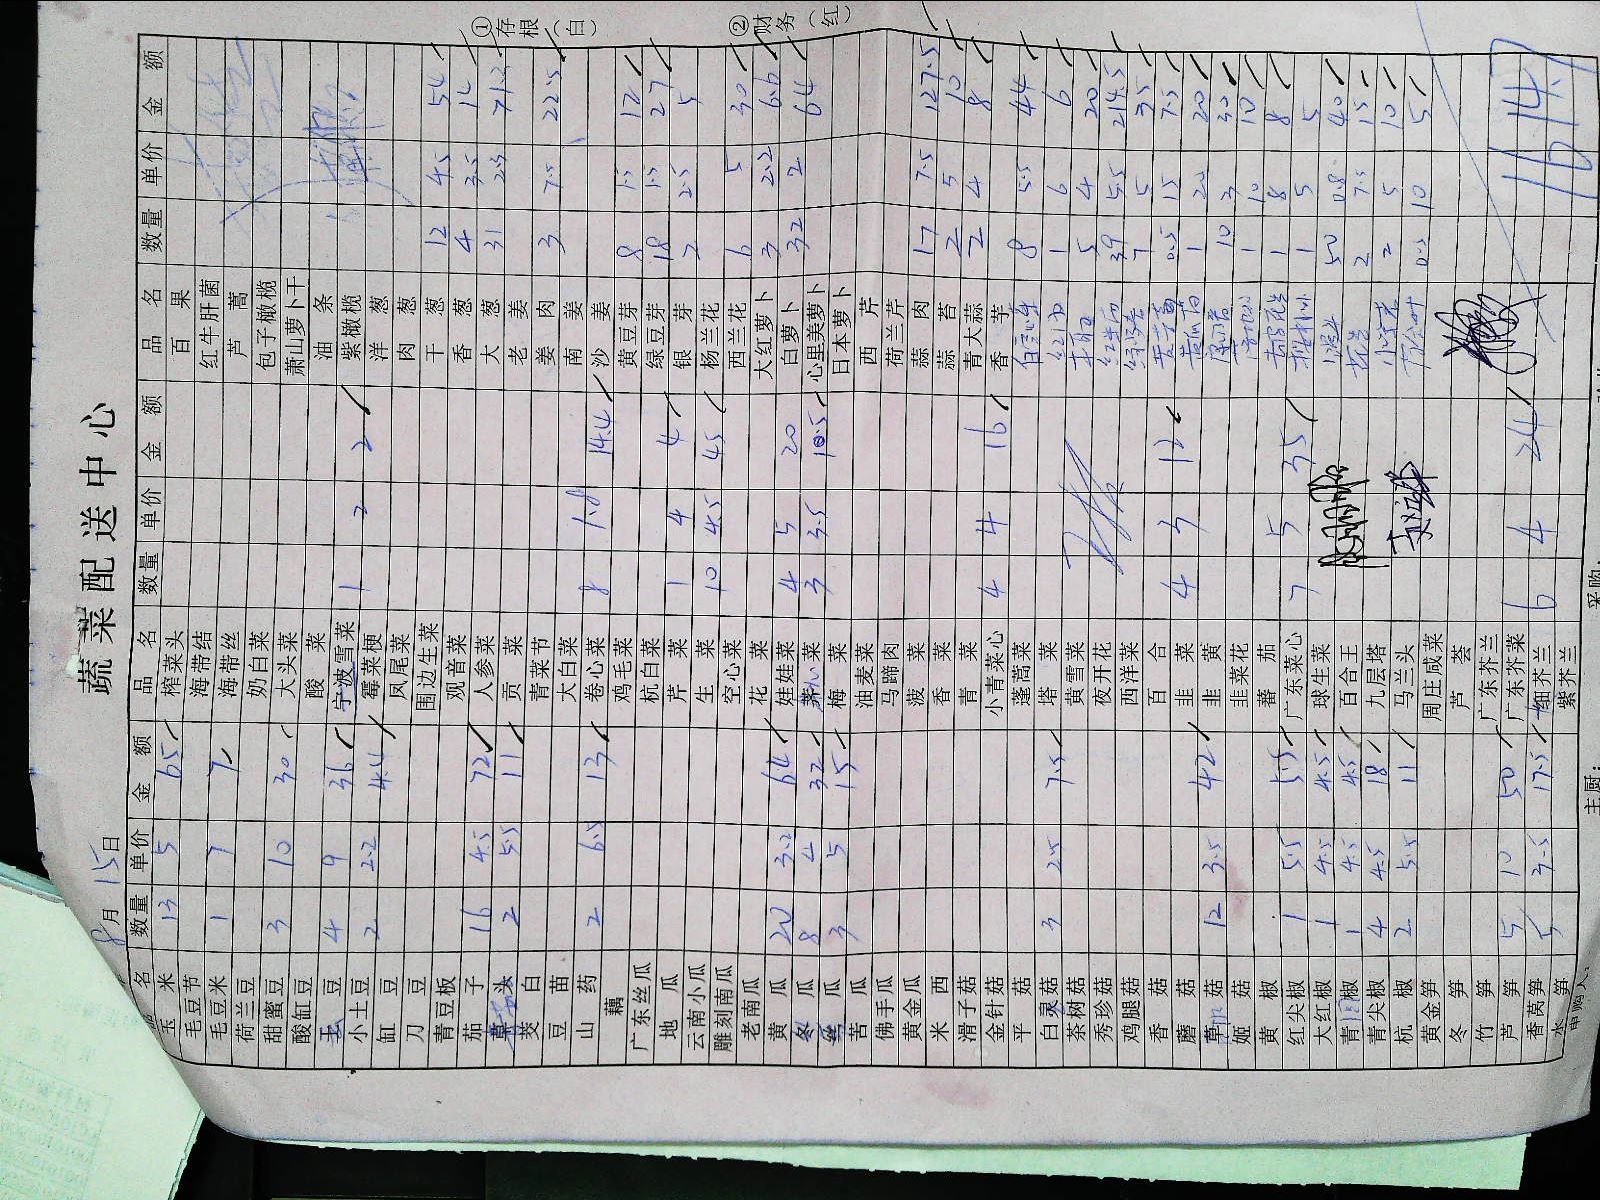 蔬菜配送中心
8月15日
品名 数量 单价 金额
玉米 13 5 65
毛豆节
毛豆米 1 7 7
荷兰豆
甜蜜豆 3 10 30
酸缸豆
豆 4 9 36
小土豆 2 2.2 4.4
缸豆
刀豆
青豆板
茄子 16 4.5 72
草头 2 5.5 11
茭白
豆苗
山药 2 6.5 13
藕
广东丝瓜
地瓜
云南小瓜
雕刻南瓜
老南瓜
黄瓜 20 3.2 64
冬瓜 8 4 32
丝瓜 3 5 15
苦瓜
佛手瓜
黄金瓜
米西
滑子菇
金针菇
平菇
白灵菇 3 2.5 7.5
茶树菇
秀珍菇
鸡腿菇
香菇
蘑菇
草菇 12 3.5 42
姬菇
黄椒
红尖椒 1 5.5 5.5
大红椒 1 4.5 4.5
青椒 1 4.5 4.5
青尖椒 4 4.5 18
杭椒 2 5.5 11
黄金笋
冬笋
竹笋
芦笋 5 10 50
香莴笋 5 3.5 17.5
水笋
申购人
品名 数量 单价 金额
榨菜头
海带结
海带丝
奶白菜
大头菜
酸菜
宁波雪菜 1 2 2
霉菜梗
凤尾菜
围边生菜
观音菜
人参菜
贡菜
青菜节
大白菜
卷心菜 8 1.8 14.4
鸡毛菜
杭白菜
芹菜 1 4 4
生菜 10 4.5 45
空心菜
花菜
娃娃菜 4 5 20
菜 3 3.5 10.5
梅菜
油麦菜
马蹄肉
菠菜
香菜
青菜
小青菜心 4 4 16
蓬蒿菜
塔菜
黄雪菜
夜开花
西洋菜
百合
韭菜 4 3 12
韭黄
韭菜花
蕃茄
广东菜心 7 5 35
球生菜
百合王
九层塔
马兰头
周庄咸菜
芦荟
广东芥兰
广东芥菜
细芥兰 6 4 24
紫芥兰
主厨：
采购：
品名 数量 单价 金额
百果
红牛肝菌
芦蒿
包子橄榄
萧山萝卜干
油条
紫橄榄
洋葱
肉葱
干葱 12 4.5 54
香葱 4 3.5 14
大葱 31 2.3 71.3
老姜
姜肉 3 7.5 22.5
南姜
沙姜
黄豆芽 8 1.5 12
绿豆芽 18 1.5 27
银芽 2 2.5 5
杨兰花
西兰花 6 5 30
大红萝卜 3 2.2 6.6
白萝卜 32 2 64
心里美萝卜
日本萝卜
西芹
荷兰芹
蒜肉 17 7.5 127.5
蒜苔 2 5 10
青大蒜 2 4 8
香芋
8 5.5 44
1 6 6
5 4 20
39 5.5 214.5
7 5 35
0.5 15 7.5
1 20 20
10 3 30
1 10 10
1 8 8
1 5 5
50 0.8 40
2 7.5 15
2 5 10
0.5 10 5
1614.7
①存根（白）
②财务（红）